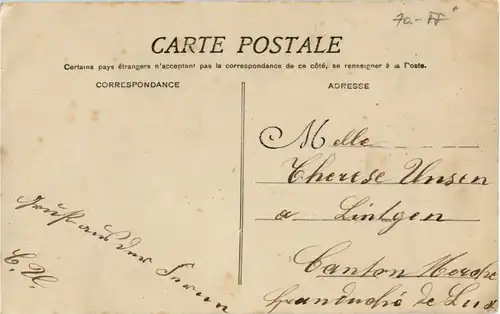 CARTE POSTALE
Certains pays étrangers n'acceptant pas la correspondance de ce côté, se renseigner à la Poste.
CORRESPONDANCE
ADRESSE
Melle
Therese Unsen
a Lintgen
Canton Mersch
Granduché de Lux
Gruß aus der Fernen
C. U.